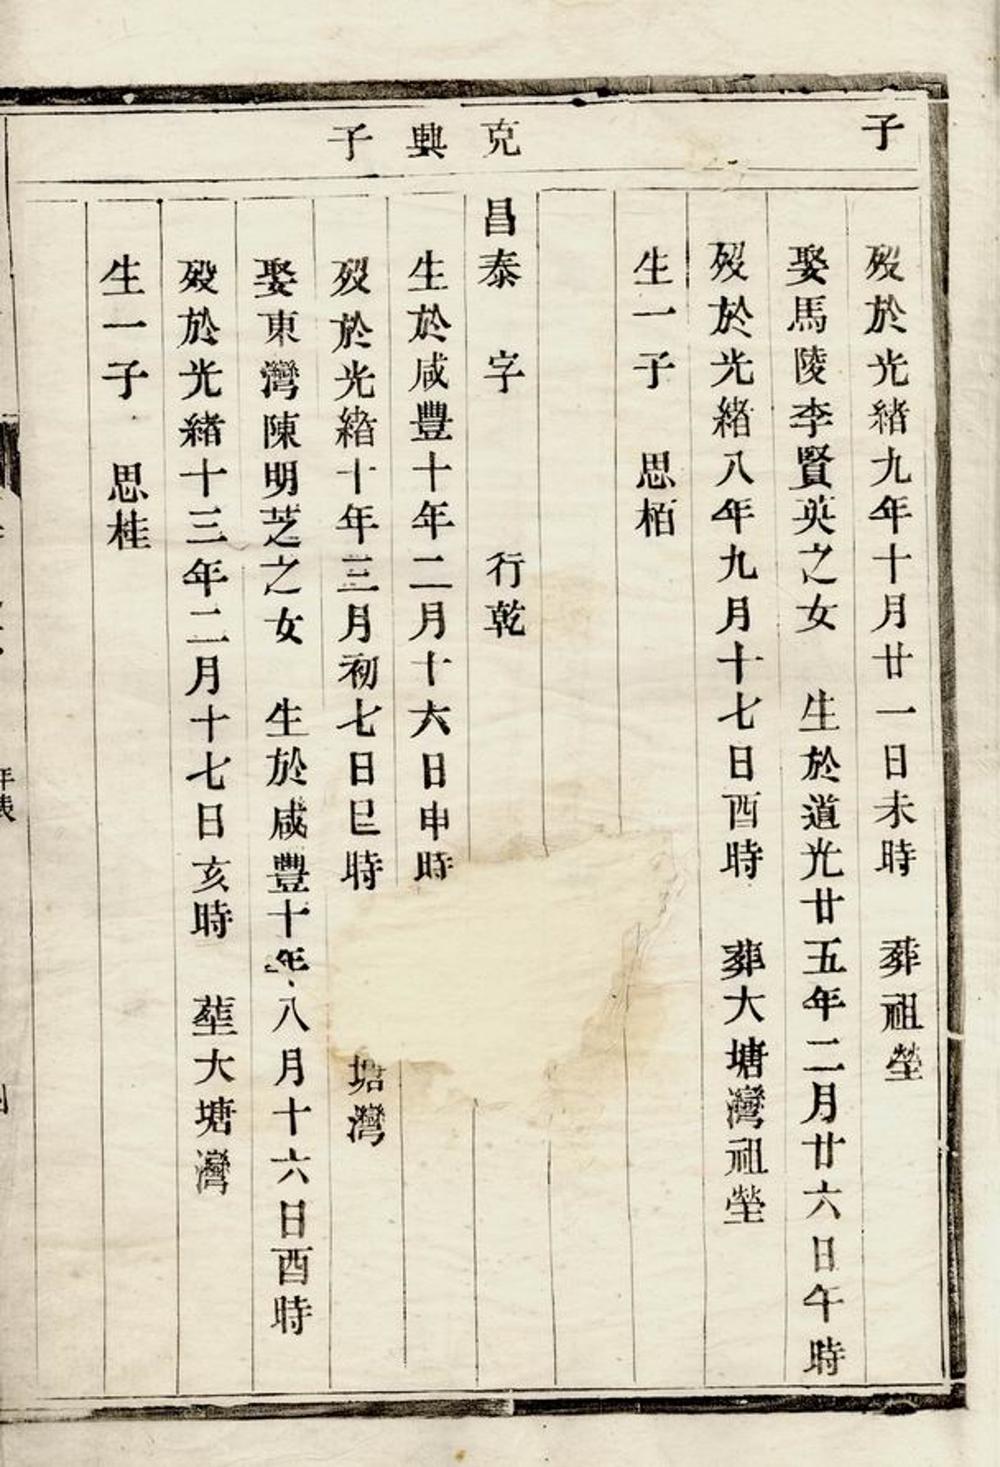 子
歿於光緒九年十月廿一日未時 葬祖塋
娶馬陵李賢英之女 生於道光廿五年二月廿六日午時
歿於光緒八年九月十七日酉時 葬大塘灣祖塋
生一子 思栢
克興子
昌泰 字 行乾
生於咸豐十年二月十六日申時
歿於光緒十年三月初七日巳時 塘灣
娶東灣陳明芝之女 生於咸豐十年八月十六日酉時
歿於光緒十三年二月十七日亥時 塟大塘灣
生一子 思桂
年表